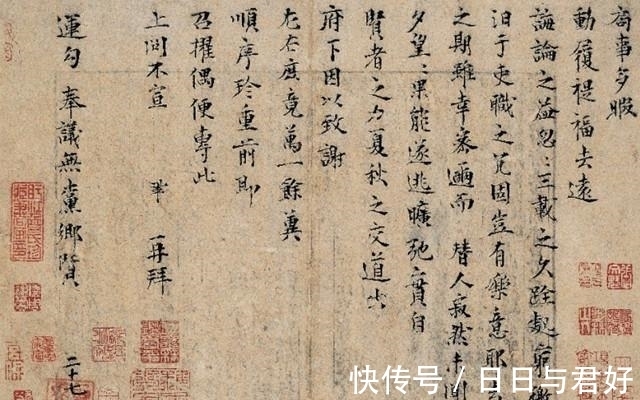 局事多暇
動履禔福去遠
誨論之益忽〻三載之久跧處窮徼
汩于吏職之冗固豈有樂意耶去
之期雖幸密邇而替人寂然未聞
夕望〻果能遂逃曠弛實自
賢者之力夏秋之交道出
府下因以致謝
左右庶竟萬一餘冀
順序珍重前即
召擢偶便專此
上問不宣 鞏 再拜
運勾奉議無黨鄉賢
二十七
快传号 / 日日与君好